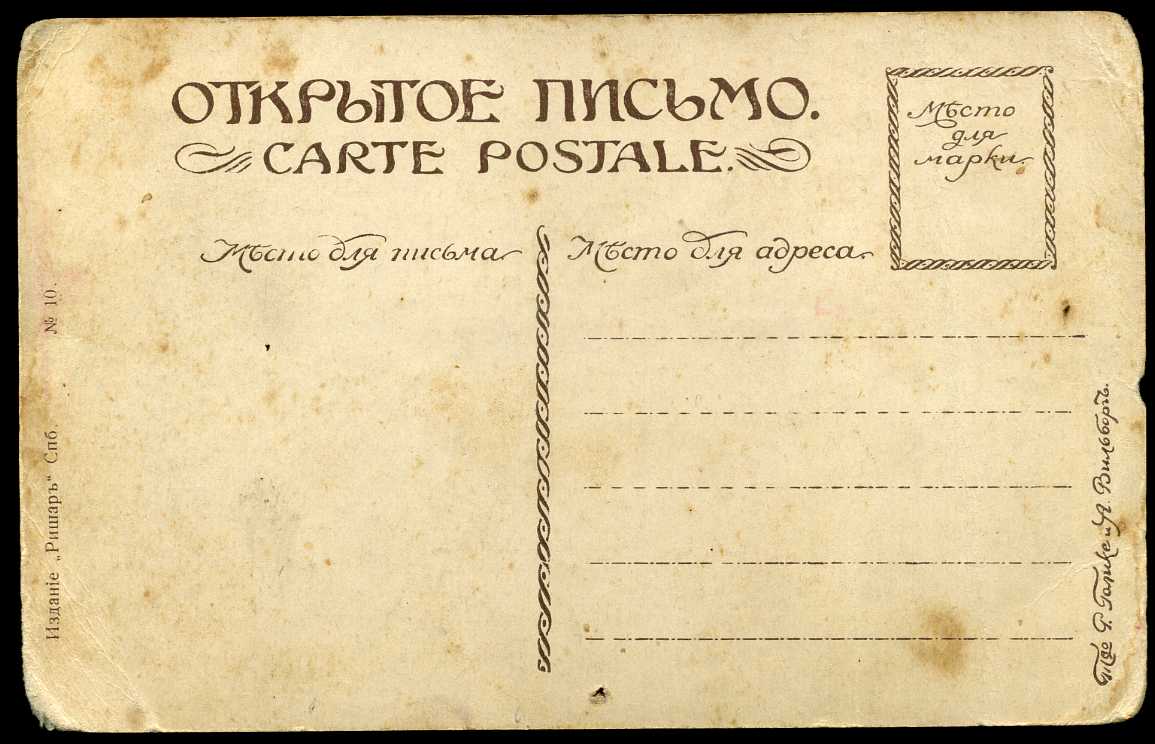 ОТКРЫТОЕ ПИСЬМО.
CARTE POSTALE.
Мѣсто
для
марки.
Мѣсто для письма
Мѣсто для адреса
Изданіе „Ришаръ“ Спб. № 10.
Тве Р. Голике и А. Вильборгъ.